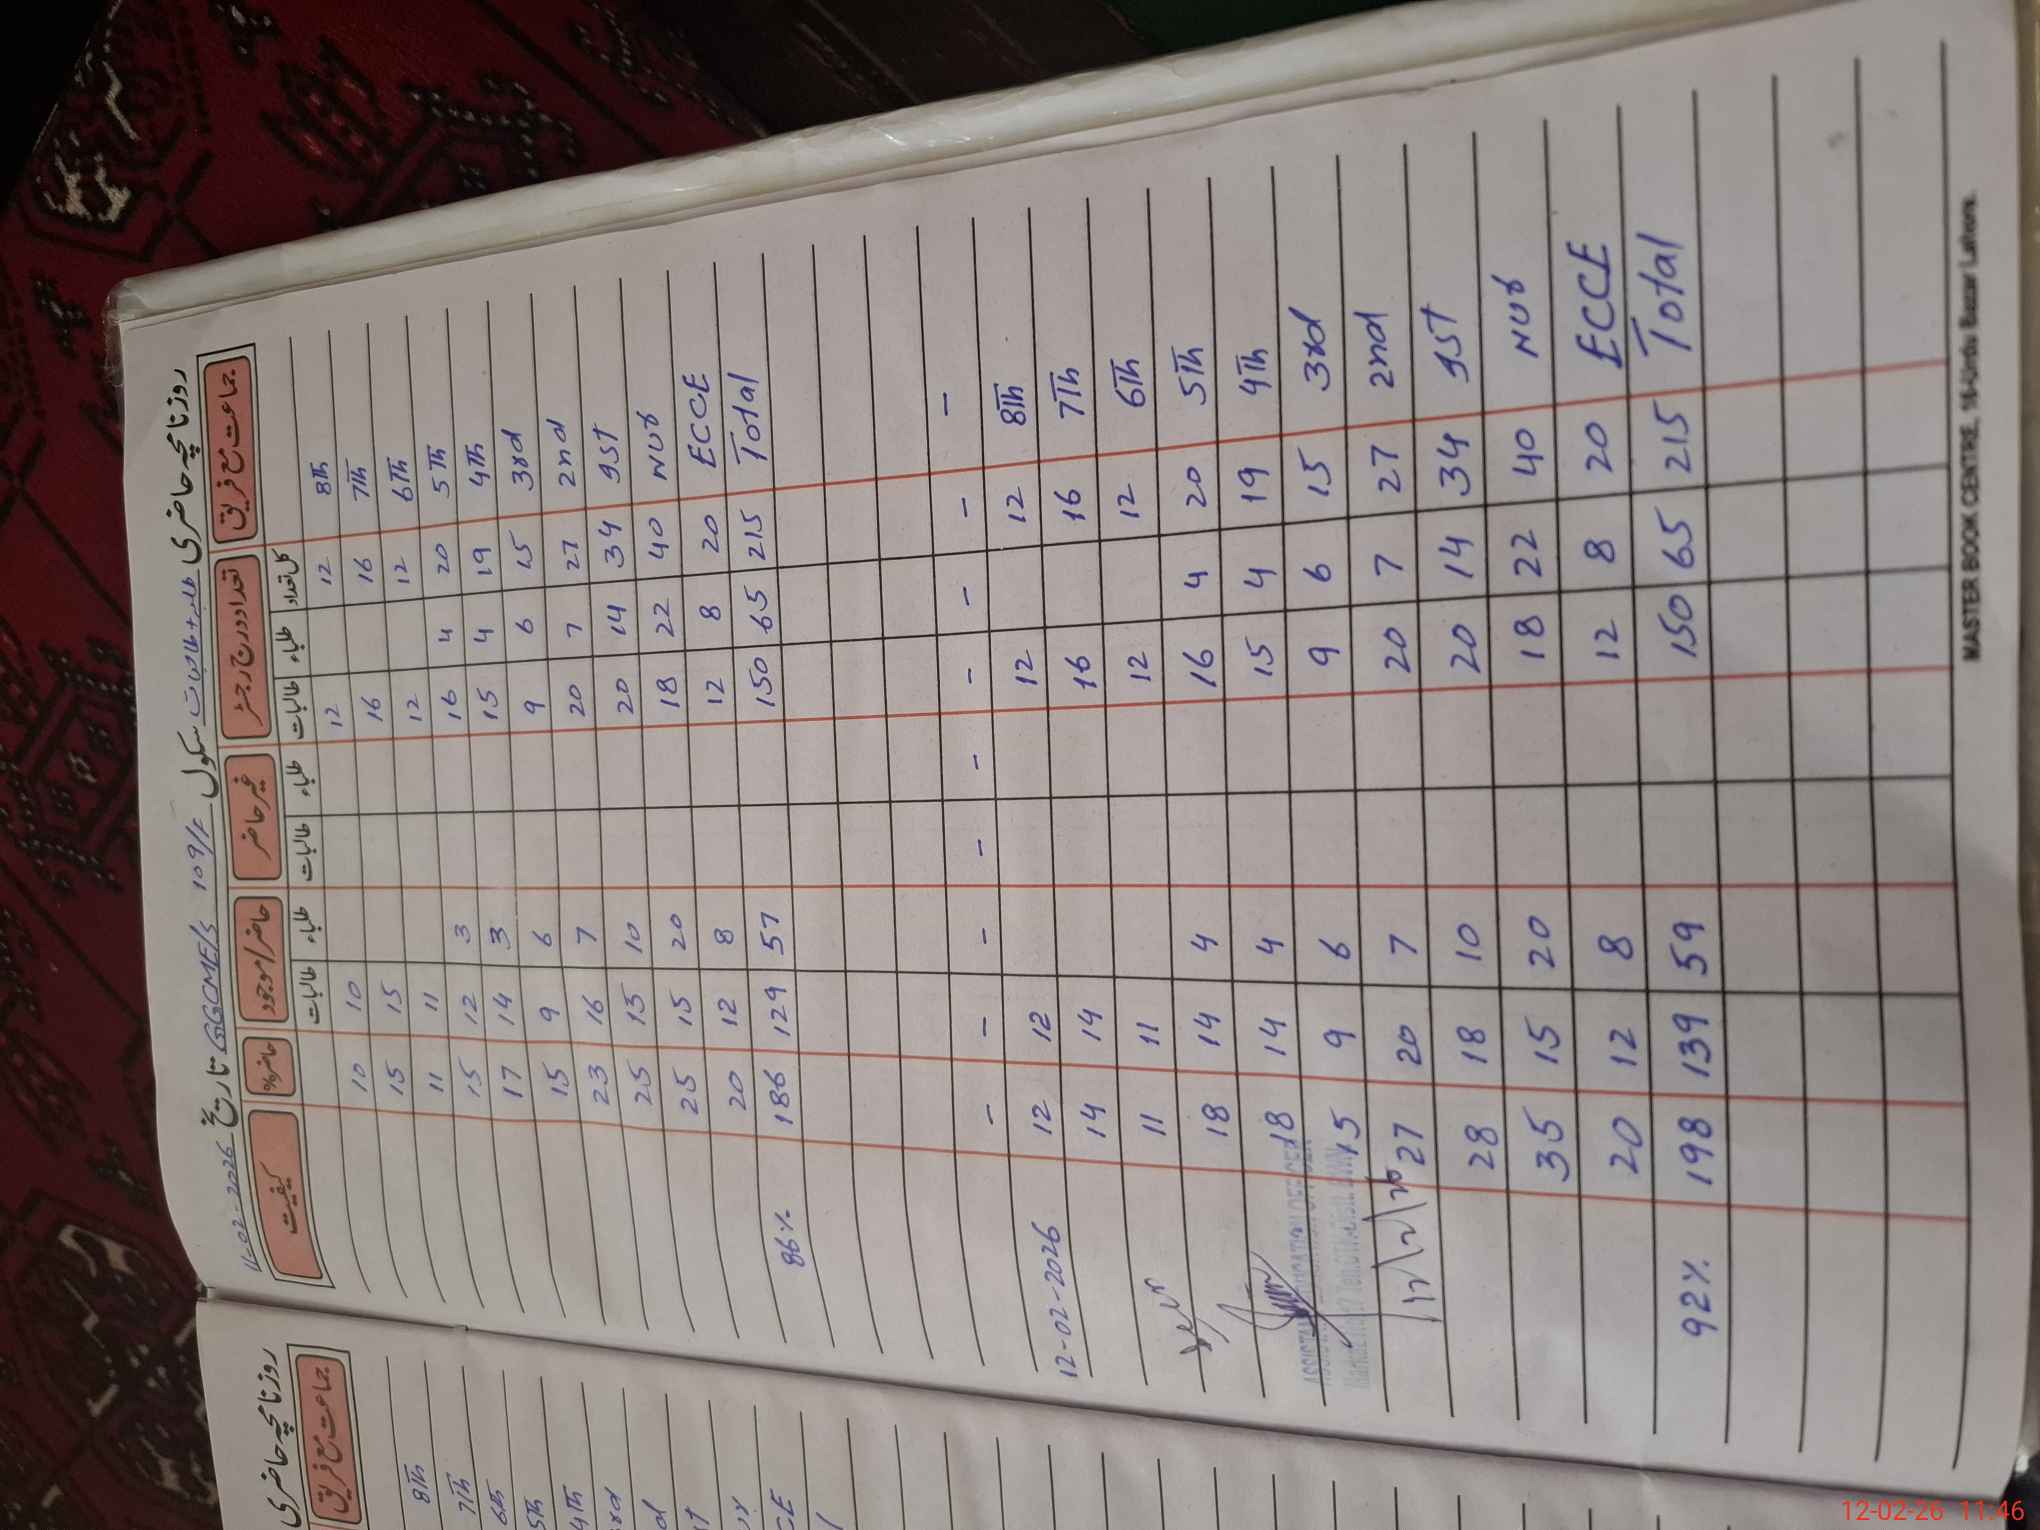 روزنامچہ حاضری طلبہ + طالبات سکول GGCMES 109/F تاریخ 11-02-2026
جماعت مع فریق تعداد درج رجسٹر غیر حاضر حاضر/موجود حاضر% کیفیت
کل تعداد طلباء طالبات طلباء طالبات طلباء طالبات
8th 12 12 10 10
7th 16 16 15 15
6th 12 12 11 11
5th 20 4 16 3 12 15
4th 19 4 15 3 14 17
3rd 15 6 9 6 9 15
2nd 27 7 20 7 16 23
1st 34 14 20 10 15 25
Nur 40 22 18 20 15 25
ECCE 20 8 12 8 12 20
Total 215 65 150 57 129 186 86%
- - - - - - - - -
8th 12 12 12 12 12-02-2026
7th 16 16 14 14
6th 12 12 11 11
5th 20 4 16 4 14 18
4th 19 4 15 4 14 18
ASSISTANT EDUCATION OFFICER
3rd 15 6 9 6 9 15
2nd 27 7 20 7 20 27
1st 34 14 20 10 18 28
Nur 40 22 18 20 15 35
ECCE 20 8 12 8 12 20
Total 215 65 150 59 139 198 92%
MASTER BOOK CENTRE, 16-Urdu Bazar Lahore.
روزنامچہ حاضری
جماعت مع فریق
8th
7th
6th
5th
4th
12-02-26 11:46